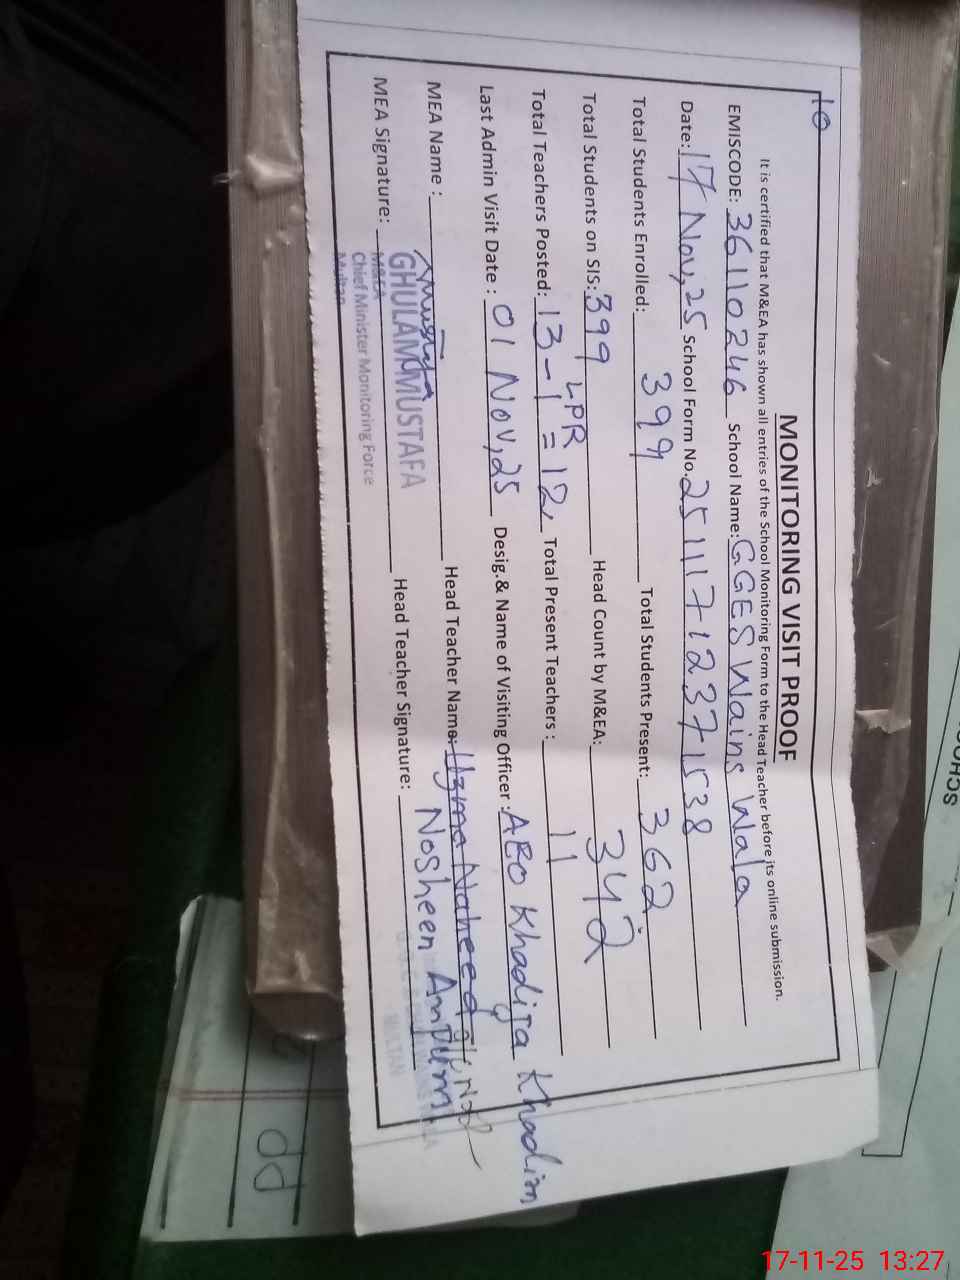 10
MONITORING VISIT PROOF
It is certified that M&EA has shown all entries of the School Monitoring Form to the Head Teacher before its online submission.
EMISCODE: 36110246 School Name: GGES Wains Wala
Date: 17 Nov, 25 School Form No. 25111712371538
Total Students Enrolled: 399 Total Students Present: 362
Total Students on SIS: 399 Head Count by M&EA: 342
LPR
Total Teachers Posted: 13-1=12, Total Present Teachers : 11
Last Admin Visit Date : 01 Nov, 25 Desig.& Name of Visiting Officer : AEO Khadija Khadim
MEA Name : Head Teacher Name: Uzma Naheed
MEA Signature: GHULAM MUSTAFA Head Teacher Signature: Nosheen Anjum
M&EA
Chief Minister Monitoring Force
Multan
MULTAN
SCHOO
dd
17-11-25 13:27